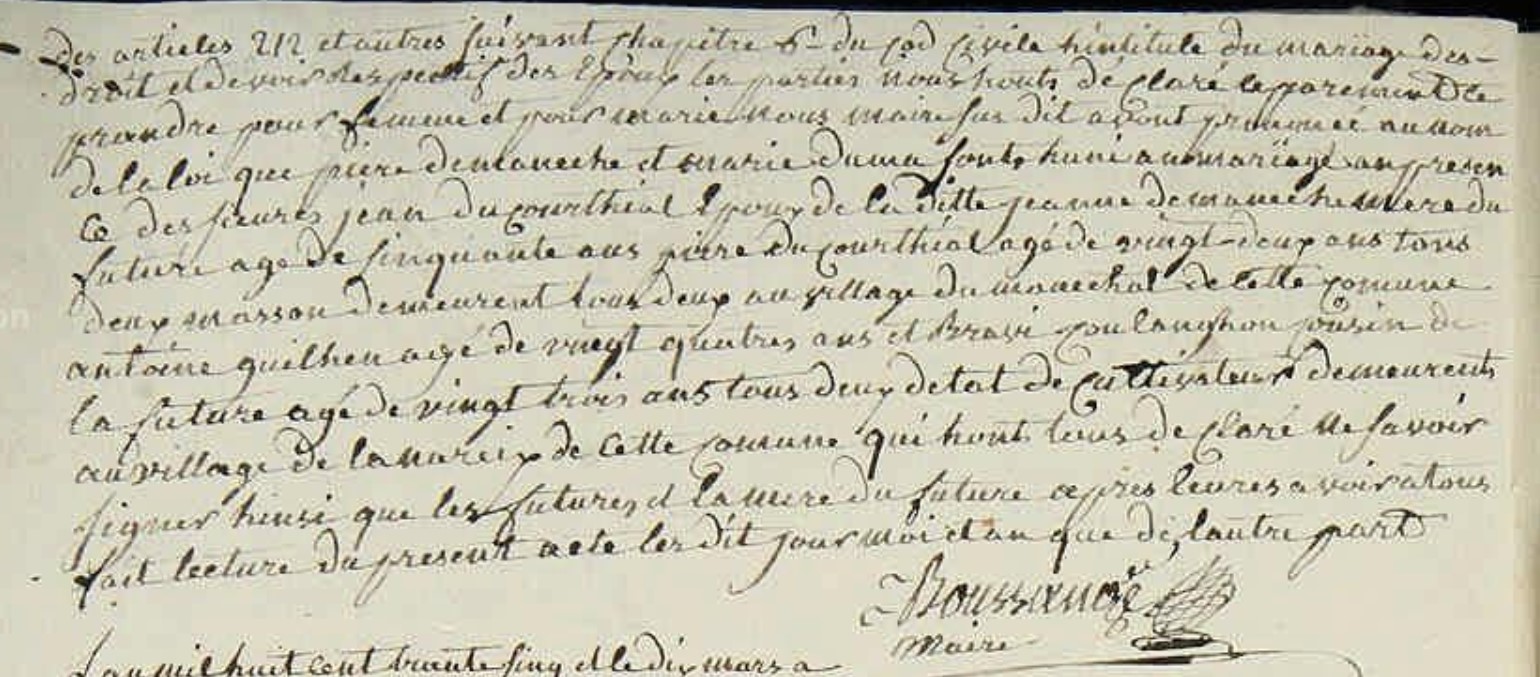 des articles 212 et autres suivant chapitre 6 du cod civile hintitule du mariage des-
droit et devoir respectif des Epoux les parties nous honts déclaré separement se
prandre pour femme et pour marie nous maire sus dit avont prononcé au nom
de la loi que piere demaneche et marie duma sonts huni an mariage an presen
ce des sieures jean du courthial Epoux de la ditte jeanne demaneche mere du
future age de sinquante ans pierre du courthial agé de vingt-deux ans tous
deux masson demeurent tous deux au village du manechal de cette comune
antoine guilhen agé de vingt quatres ans et coulanghon cousin de
la future agé de vingt trois ans tous deux detat de cultivateur demeurents
au village de la nureix de cette comune qui honts tous declaré ne savoir
signer hinsi que les futures et la mere du future apres leures avoir a tous
fait lecture du present acte les dit jour moi et an que de lautre part
maire
Lan mil huit cent trante sinq et le dix mars a